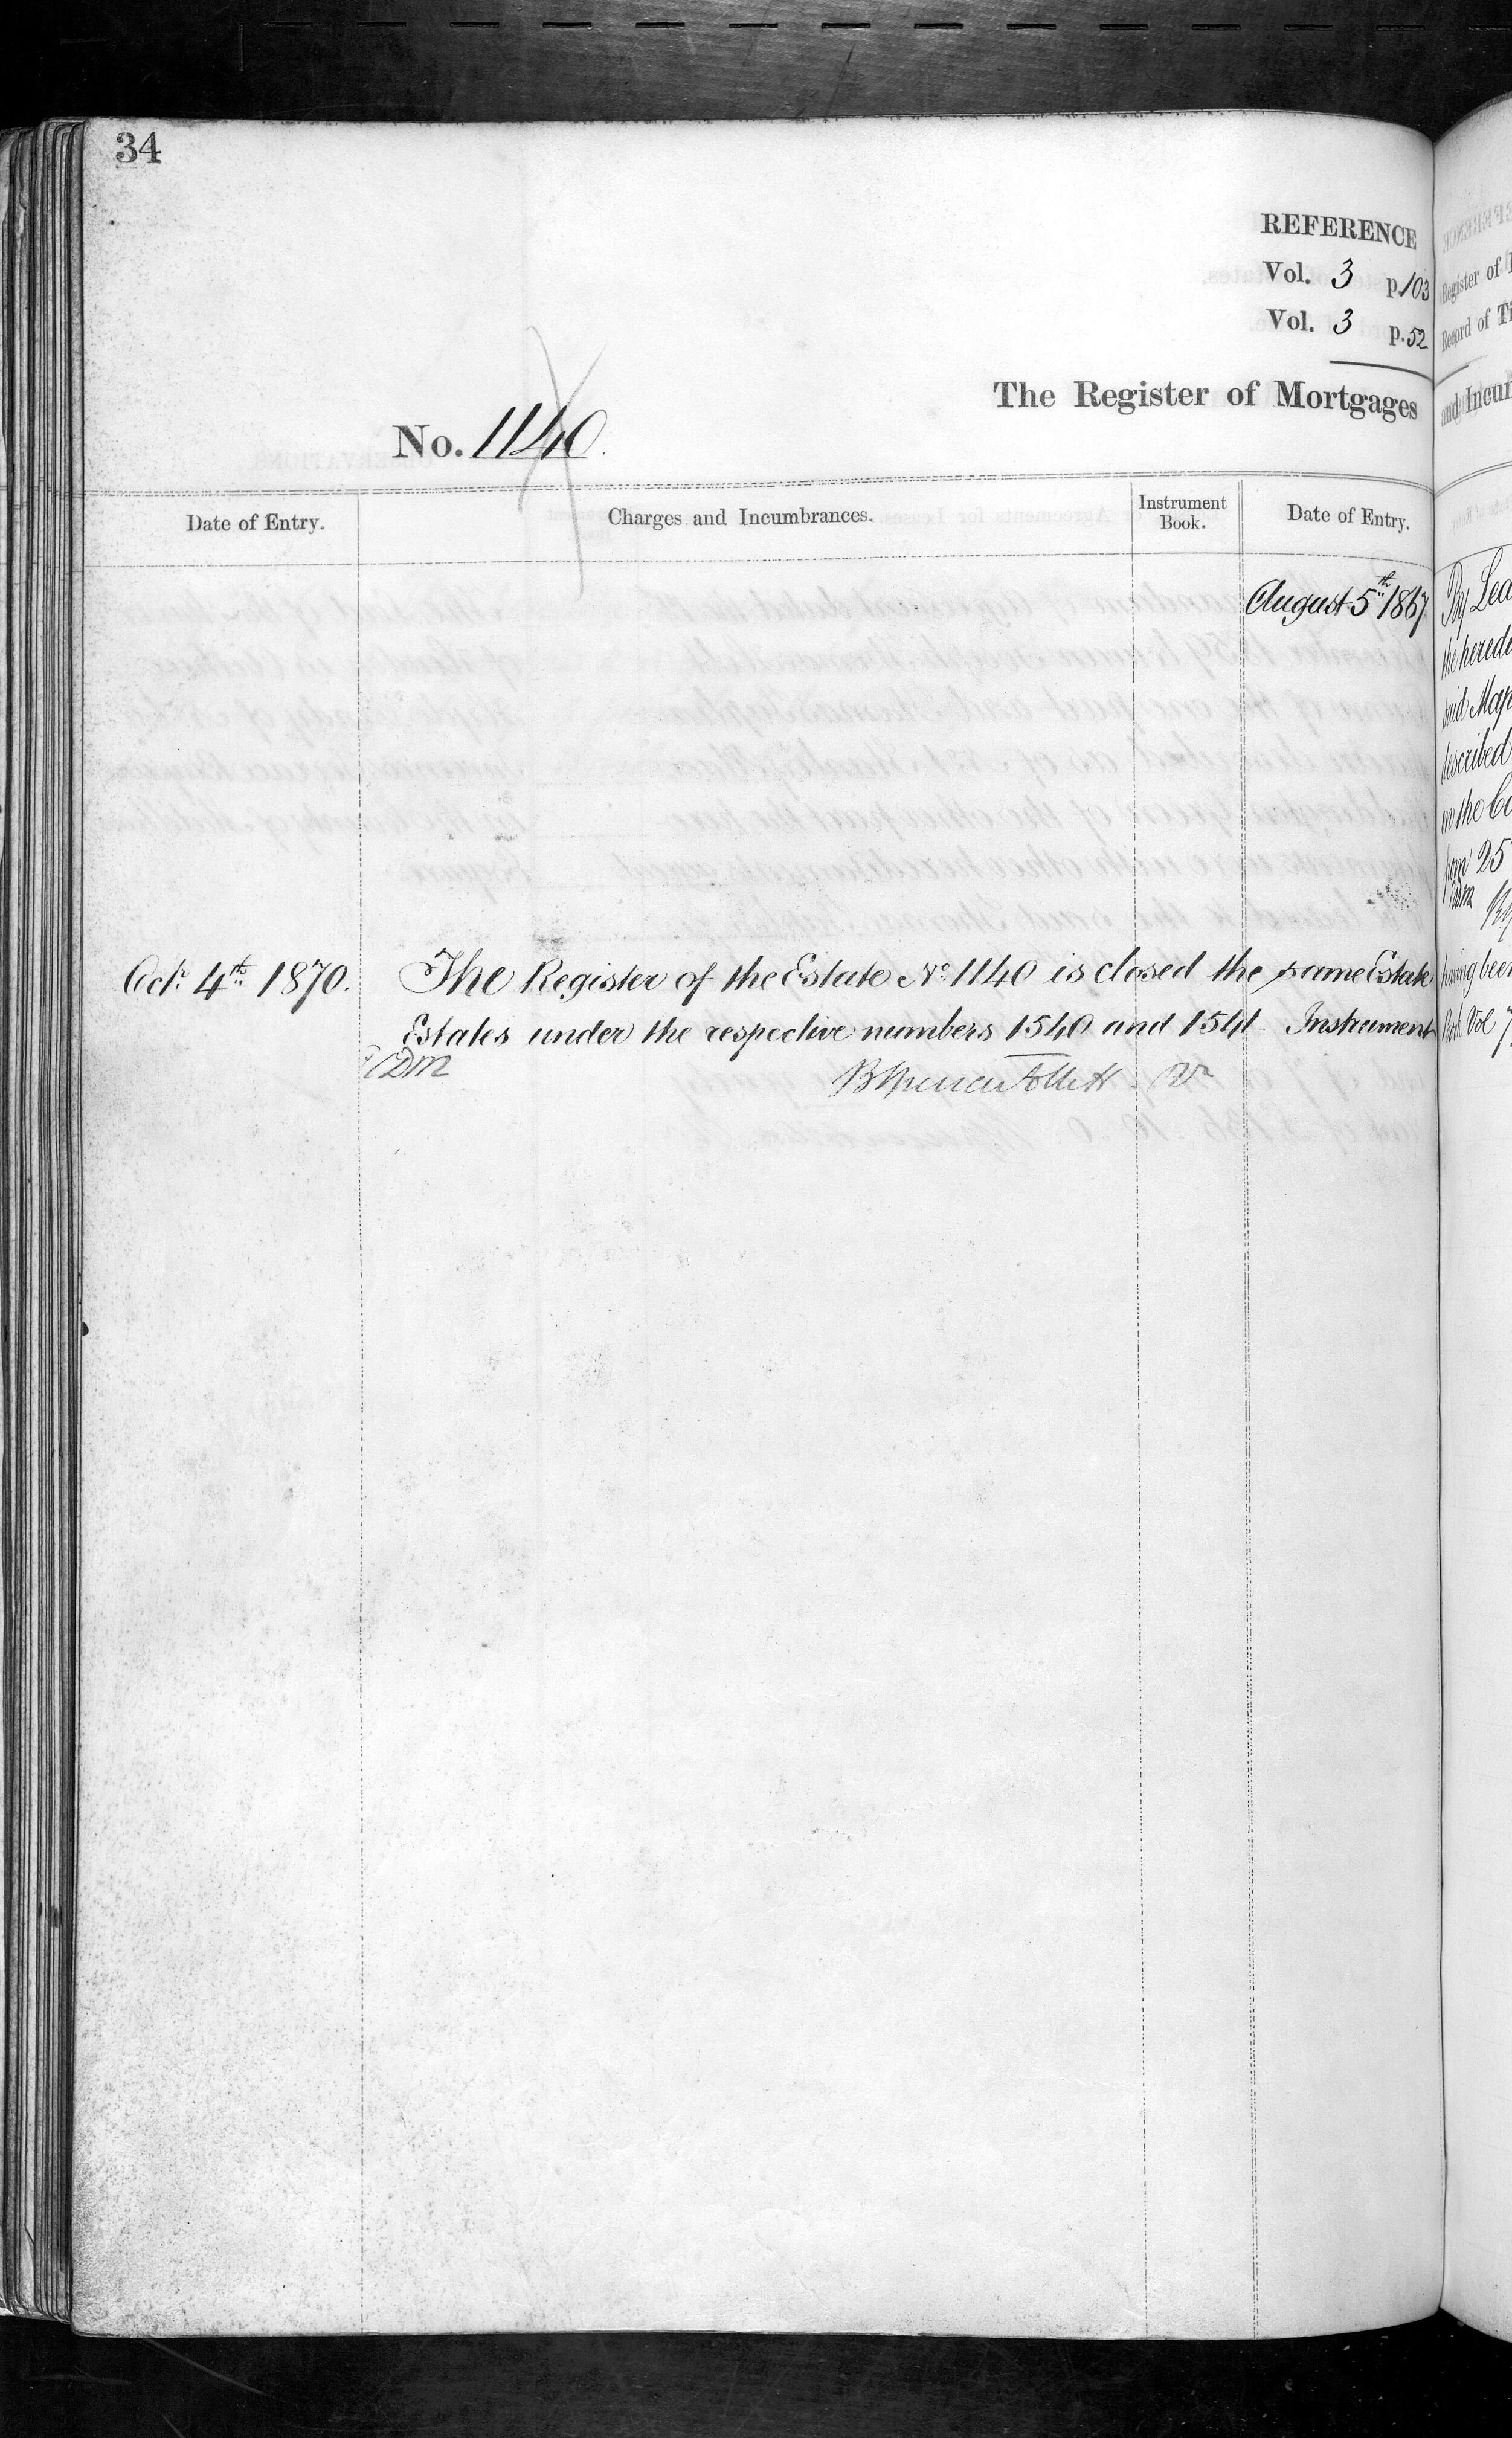 34
REFERENCE
Vol. 3 p.103
Vol. 3 p.52
The Register of Mortgages
No. 1140.
Date of Entry.
Charges and Incumbrances.
Instrument Book.
Date of Entry.
August 5th 1867
Octr 4th 1870. The Register of the Estate No 1140 is closed the same Estate
Estates under the respective numbers 1540 and 1541 Instrument
BSpencer Follett
Register of
Record of Ti
and Incum
By Lea
the hered
said Map
described
in the Co
from 25
having been
Book Vol 7